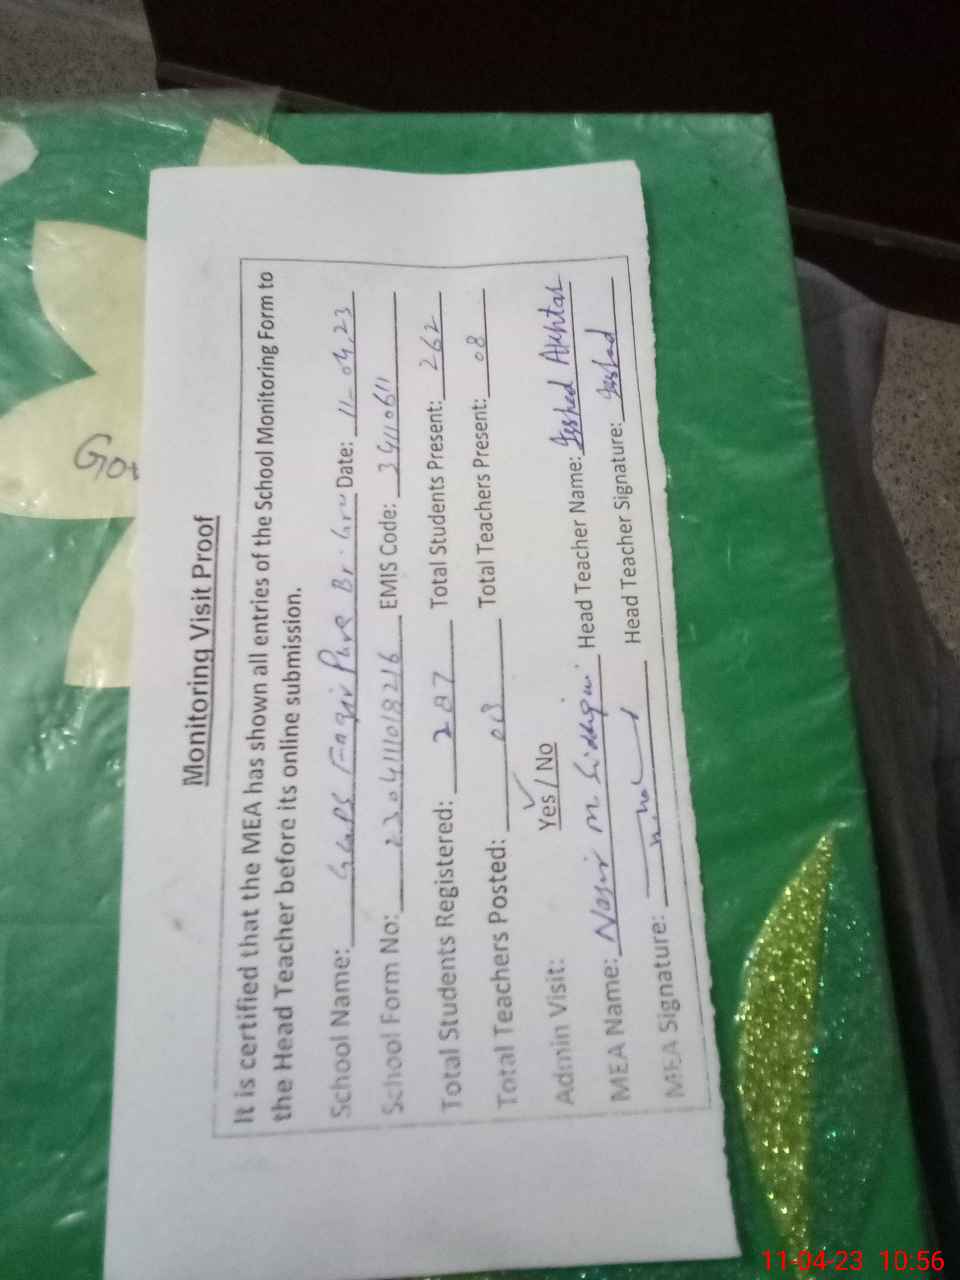 Gov
Monitoring Visit Proof
It is certified that the MEA has shown all entries of the School Monitoring Form to
the Head Teacher before its online submission.
School Name: GGPS Faqir Pura Date: 11-04.23
School Form No: 2304111018216 EMIS Code: 39110611
Total Students Registered: 287 Total Students Present: 262
Total Teachers Posted: 08 Total Teachers Present: 08
Admin Visit: Yes / No
MEA Name: Nasir m Siddiqui Head Teacher Name: Akhtar
MEA Signature: Head Teacher Signature:
11-04-23 10:56